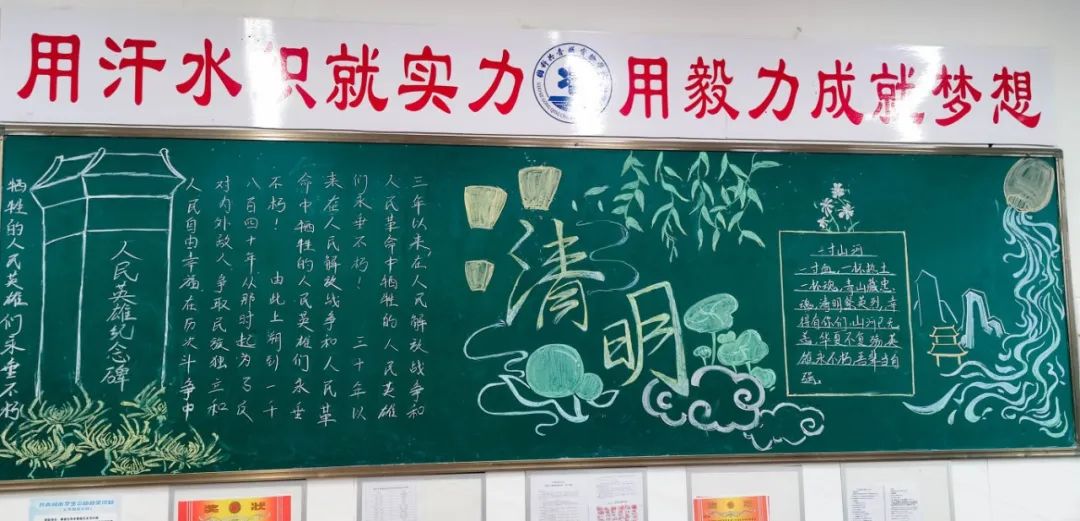 用汗水织就实力 用毅力成就梦想
三年以来,在人民解放战争和
人民革命中牺牲的人民英雄
们永垂不朽! 三十年以
来在人民解放战争和人民革
命中牺牲的人民英雄们永垂
不朽! 由此上溯到一千
八百四十年从那时起为了反
对内外敌人,争取民族独立和
人民自由幸福在历次斗争中
牺牲的人民英雄们永垂不朽
人民英雄纪念碑
清明
一寸山河
一寸血,一杯热土
一杯魂,青山藏忠
魂,清明祭英烈,幸
得有你们,山河已无
恙,华夏不复殇,英
雄永不朽,吾辈当自
强。
奖状
奖状